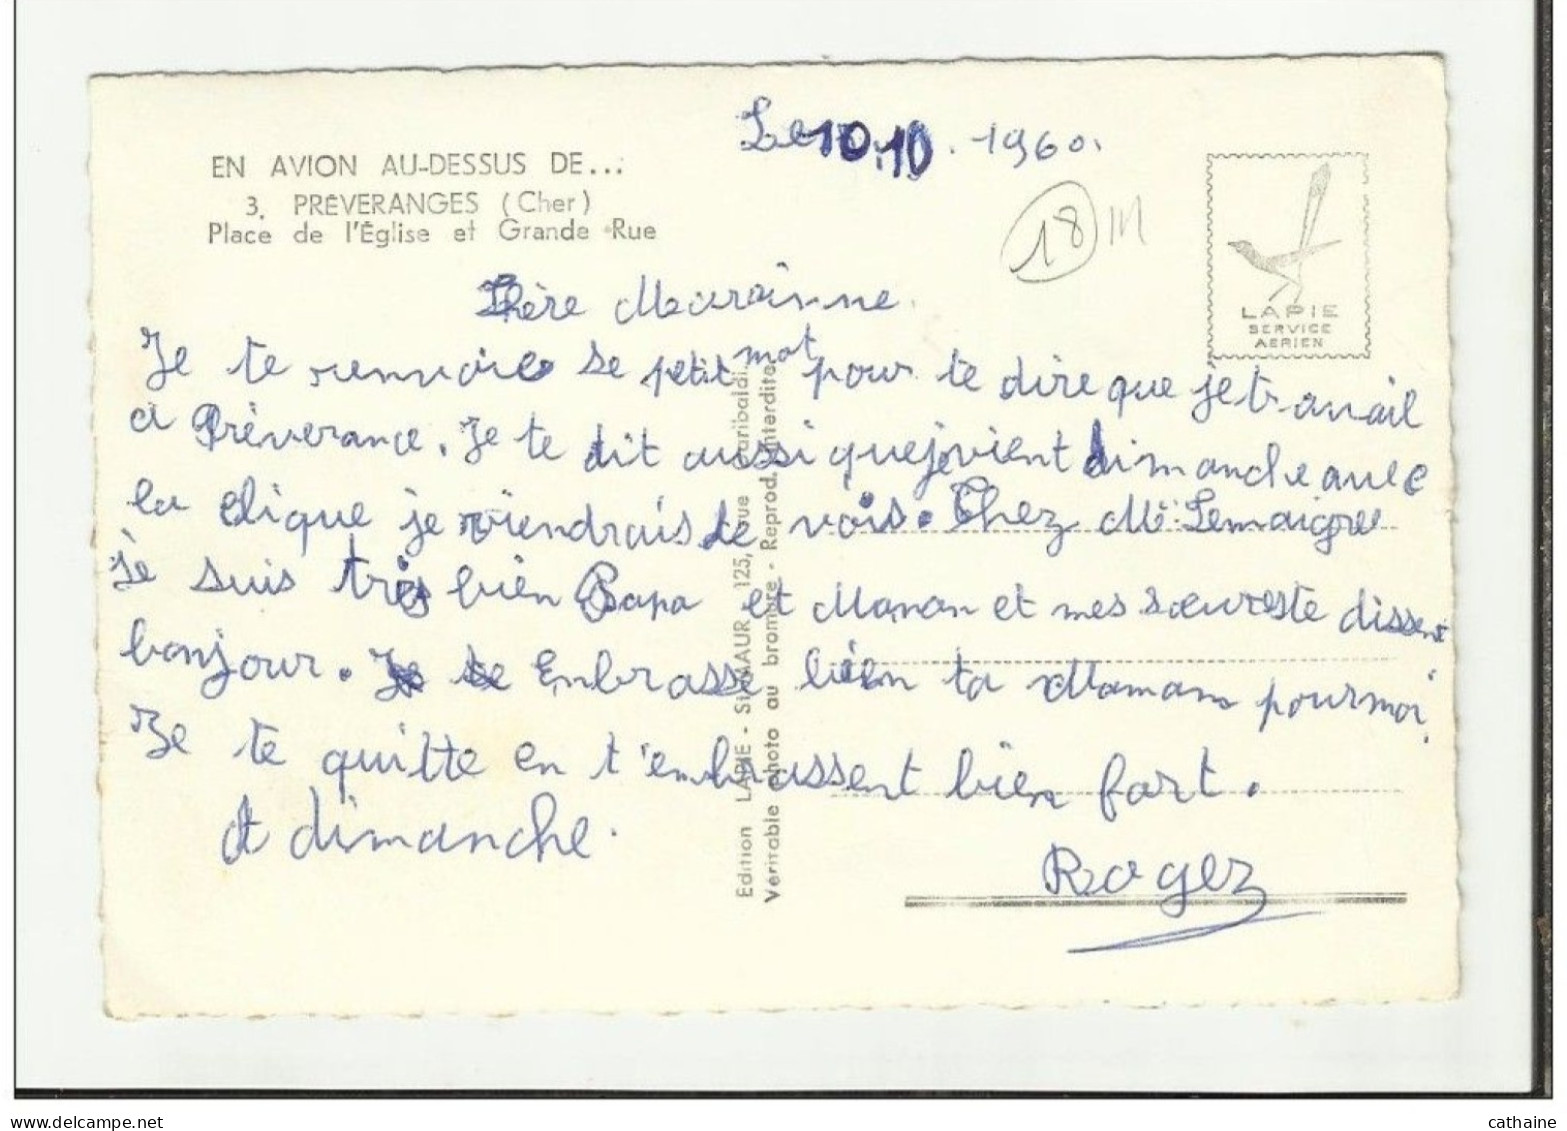 Le 10.10.1960.
EN AVION AU-DESSUS DE...
3. PRÉVERANGES (Cher)
Place de l'Église et Grande Rue
18 m
LAPIE
SERVICE
AERIEN
Chère Marainne.
Je te renvoie se petit mot pour te dire que je travail
a Préverance. Je te dit aussi que je vient dimanche avec
la clique je viendrais te vois. Chez Mr Lemaigre
je suis très bien Papa et Maman et mes sœurs te dissent
bonjour. Je te Embrasse bien ta Maman pour moi.
Je te quitte en t'embrassent bien fort.
A dimanche.
Roger
Edition LAPIE - St-MAUR 125, rue Garibaldi.
Véritable photo au bromure - Reprod. Interdite.
cathaine